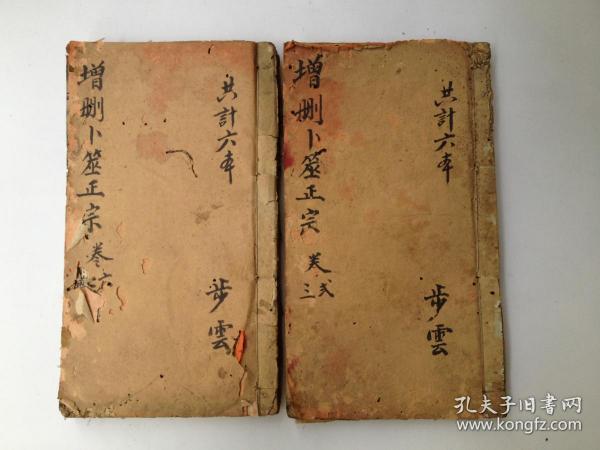 增删卜筮正宗 卷六
共計六本
步雲
增删卜筮正宗 卷弍三
共計六本
步雲
孔夫子旧書网
www.kongfz.com